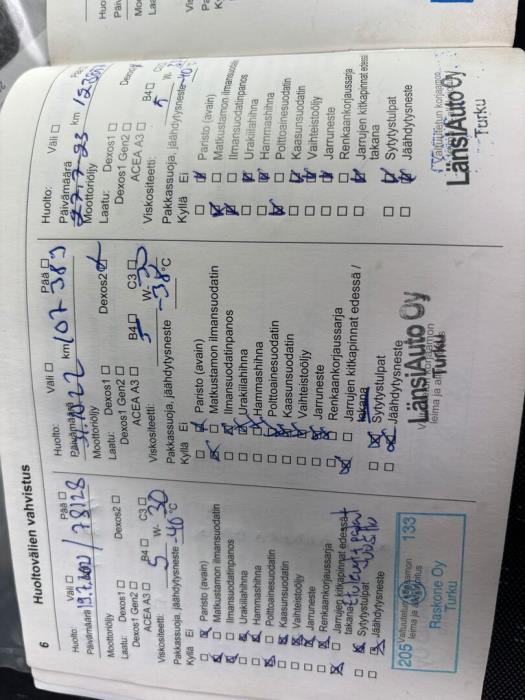 6 Huoltovälien vahvistus
Huolto: Väli Pää
Päivämäärä 19.7.2020 / 78128
Moottoriöljy
Laatu: Dexos1 Dexos2
Dexos1 Gen2
ACEA A3 B4 C3
Viskositeetti: 5 W- 30
Pakkassuoja, jäähdytysneste -40 °C
Kyllä Ei
Paristo (avain)
Matkustamon ilmansuodatin
Ilmansuodatinpanos
Urakiilahihna
Hammashihna
Polttoainesuodatin
Kaasunsuodatin
Vaihteistoöljy
Jarruneste
Renkaankorjaussarja
Jarrujen kitkapinnat edessä /
takana
Sytytystulpat
Jäähdytysneste
205 133
Valtuutetun korjaamon
leima ja allekirjoitus
Raskone Oy
Turku
Huolto: Väli Pää
Päivämäärä km 107 383
Moottoriöljy
Laatu: Dexos1 Dexos2
Dexos1 Gen2
ACEA A3 B4 C3
Viskositeetti: 5 W- 30
Pakkassuoja, jäähdytysneste -38 °C
Kyllä Ei
Paristo (avain)
Matkustamon ilmansuodatin
Ilmansuodatinpanos
Urakiilahihna
Hammashihna
Polttoainesuodatin
Kaasunsuodatin
Vaihteistoöljy
Jarruneste
Renkaankorjaussarja
Jarrujen kitkapinnat edessä /
takana
Sytytystulpat
Jäähdytysneste
LänsiAuto Oy
Turku
Huolto: Väli
Päivämäärä km
Moottoriöljy
Laatu: Dexos1
Dexos1 Gen2
ACEA A3 B4
Viskositeetti: 5 W-
Pakkassuoja, jäähdytysneste -40
Kyllä Ei
Paristo (avain)
Matkustamon ilmansuodatin
Ilmansuodatinpanos
Urakiilahihna
Hammashihna
Polttoainesuodatin
Kaasunsuodatin
Vaihteistoöljy
Jarruneste
Renkaankorjaussarja
Jarrujen kitkapinnat edessä
takana
Sytytystulpat
Jäähdytysneste
Valtuutetun korjaamon
LänsiAuto Oy
Turku